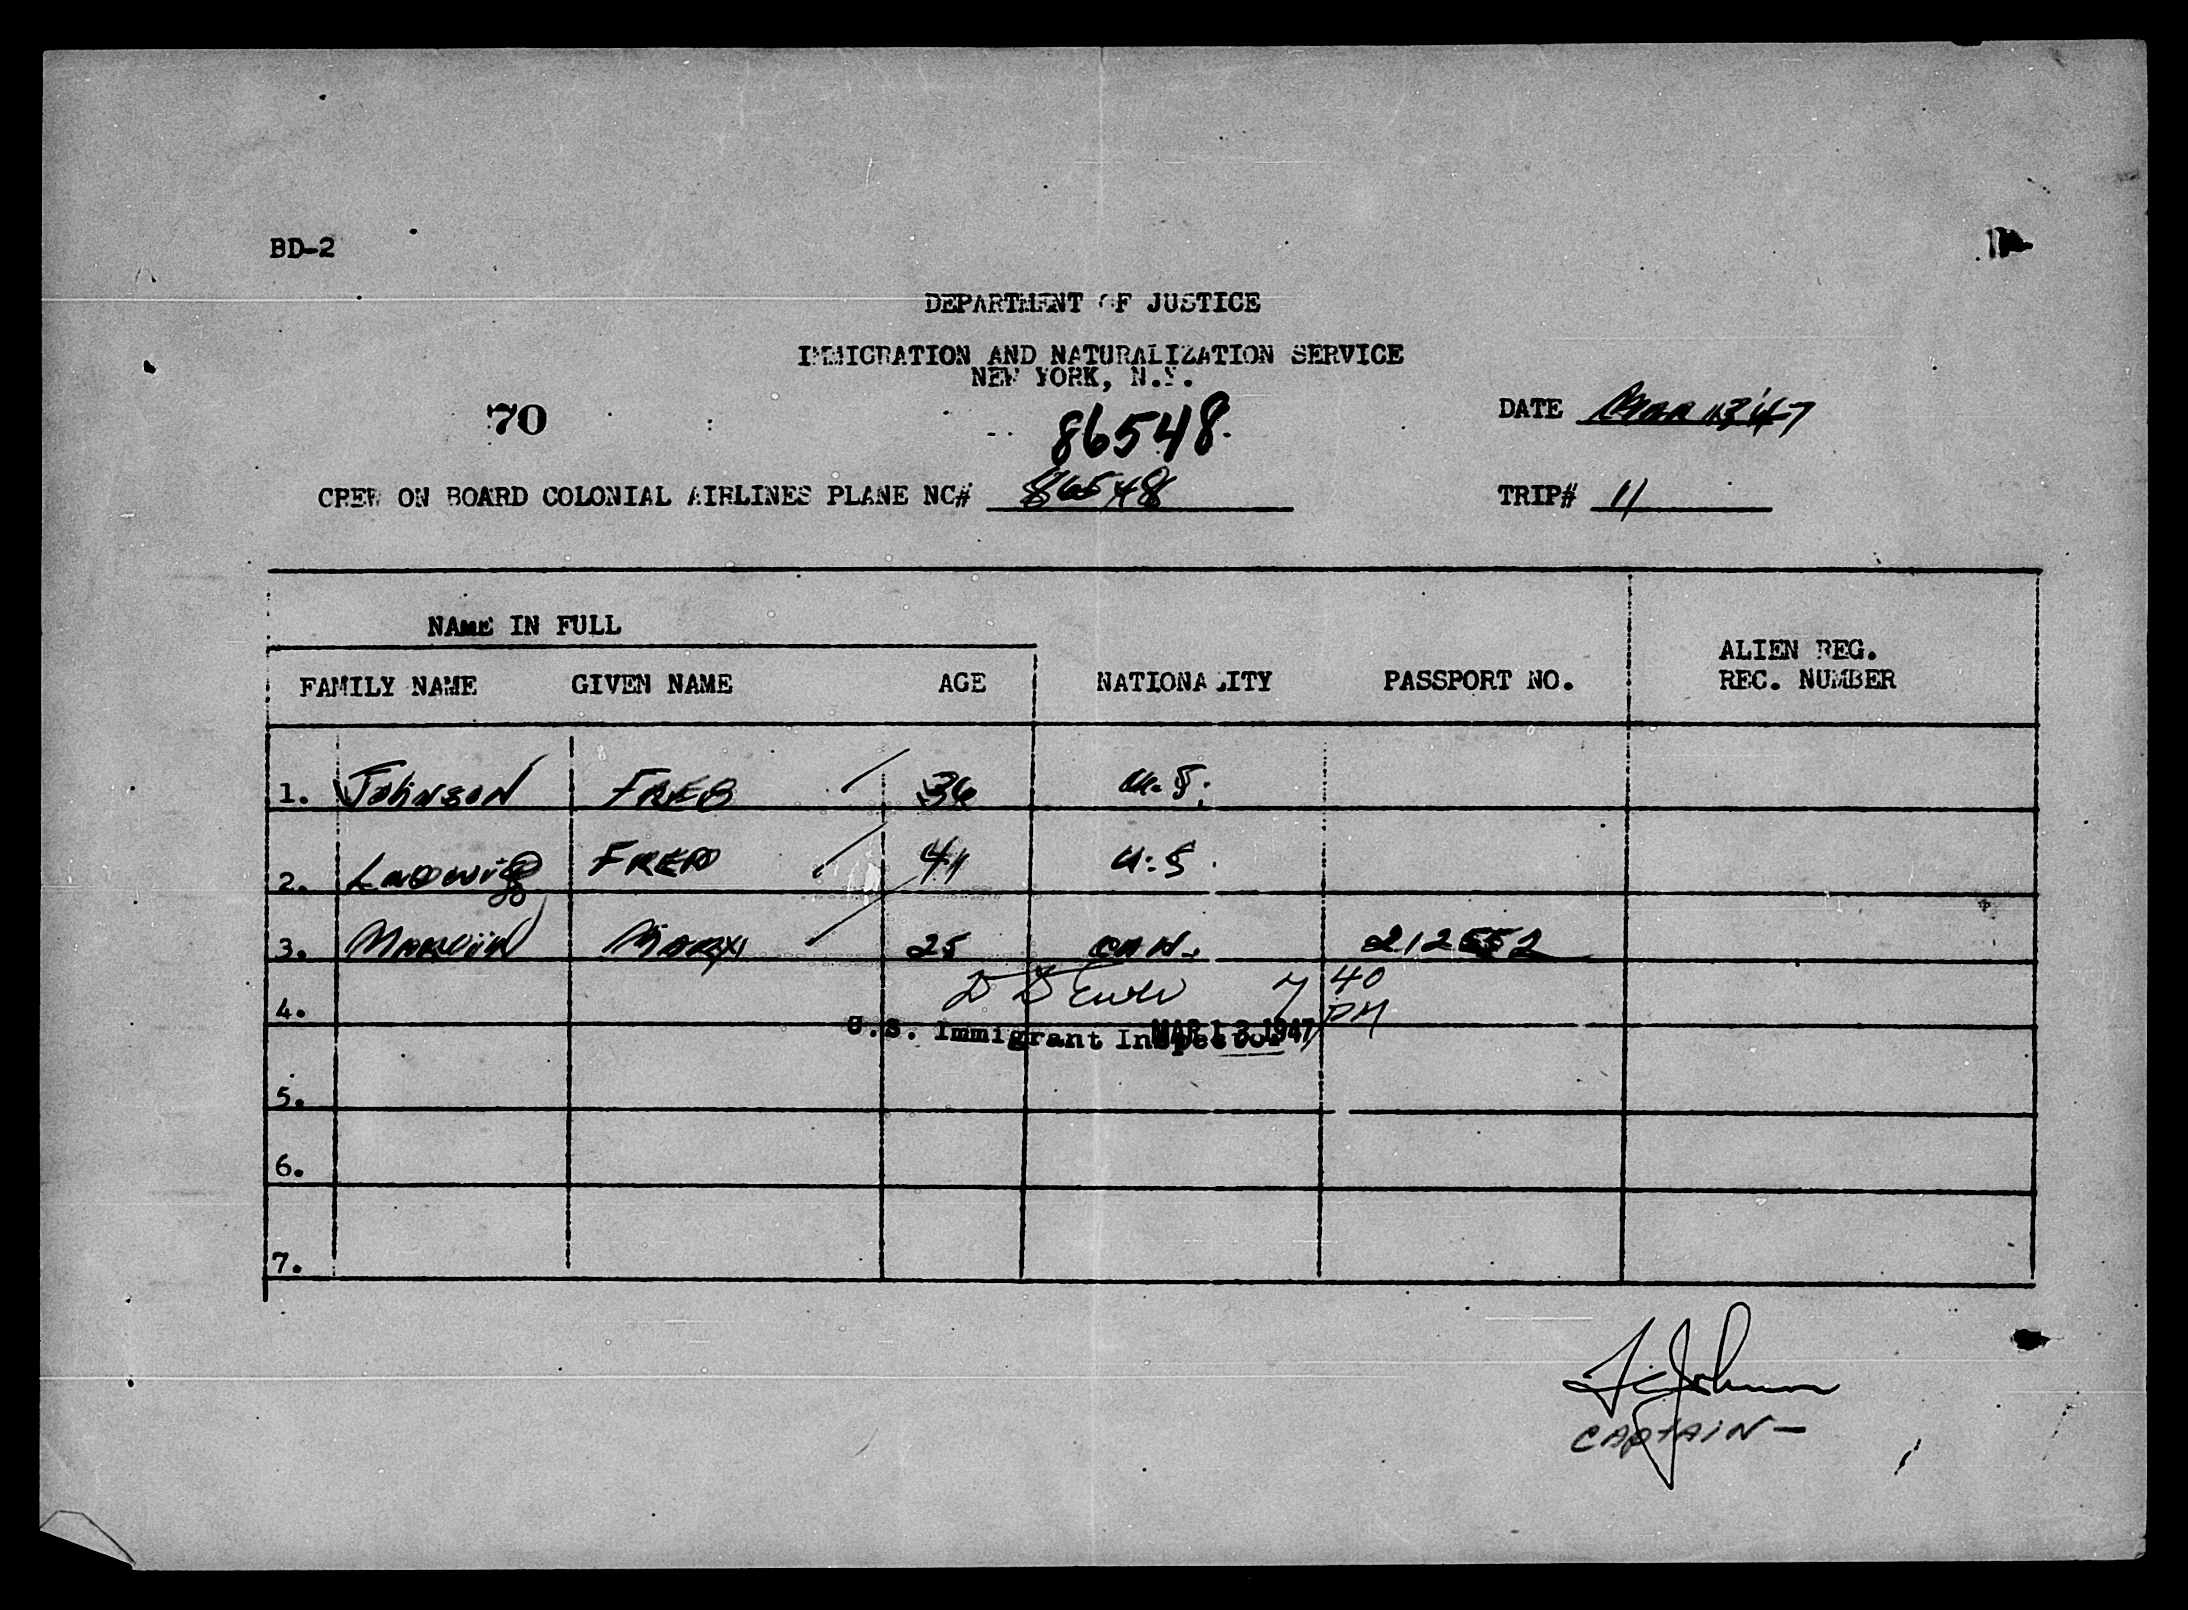 BD-2
DEPARTMENT OF JUSTICE
IMMIGRATION AND NATURALIZATION SERVICE
NEW YORK, N.Y.
70
86548
DATE MAR 13 '47
CREW ON BOARD COLONIAL AIRLINES PLANE NC# 86548
TRIP# 11
NAME IN FULL
FAMILY NAME GIVEN NAME AGE NATIONALITY PASSPORT NO. ALIEN REG. REC. NUMBER
1. Johnson FRED 36 U.S.
2. LUDWIG FRED 41 U.S.
3. 25 CAN. 212552
4. 7 40 PM
U.S. Immigrant Inspector MAR 13 1947
5.
6.
7.
F. Johnson
CAPTAIN-